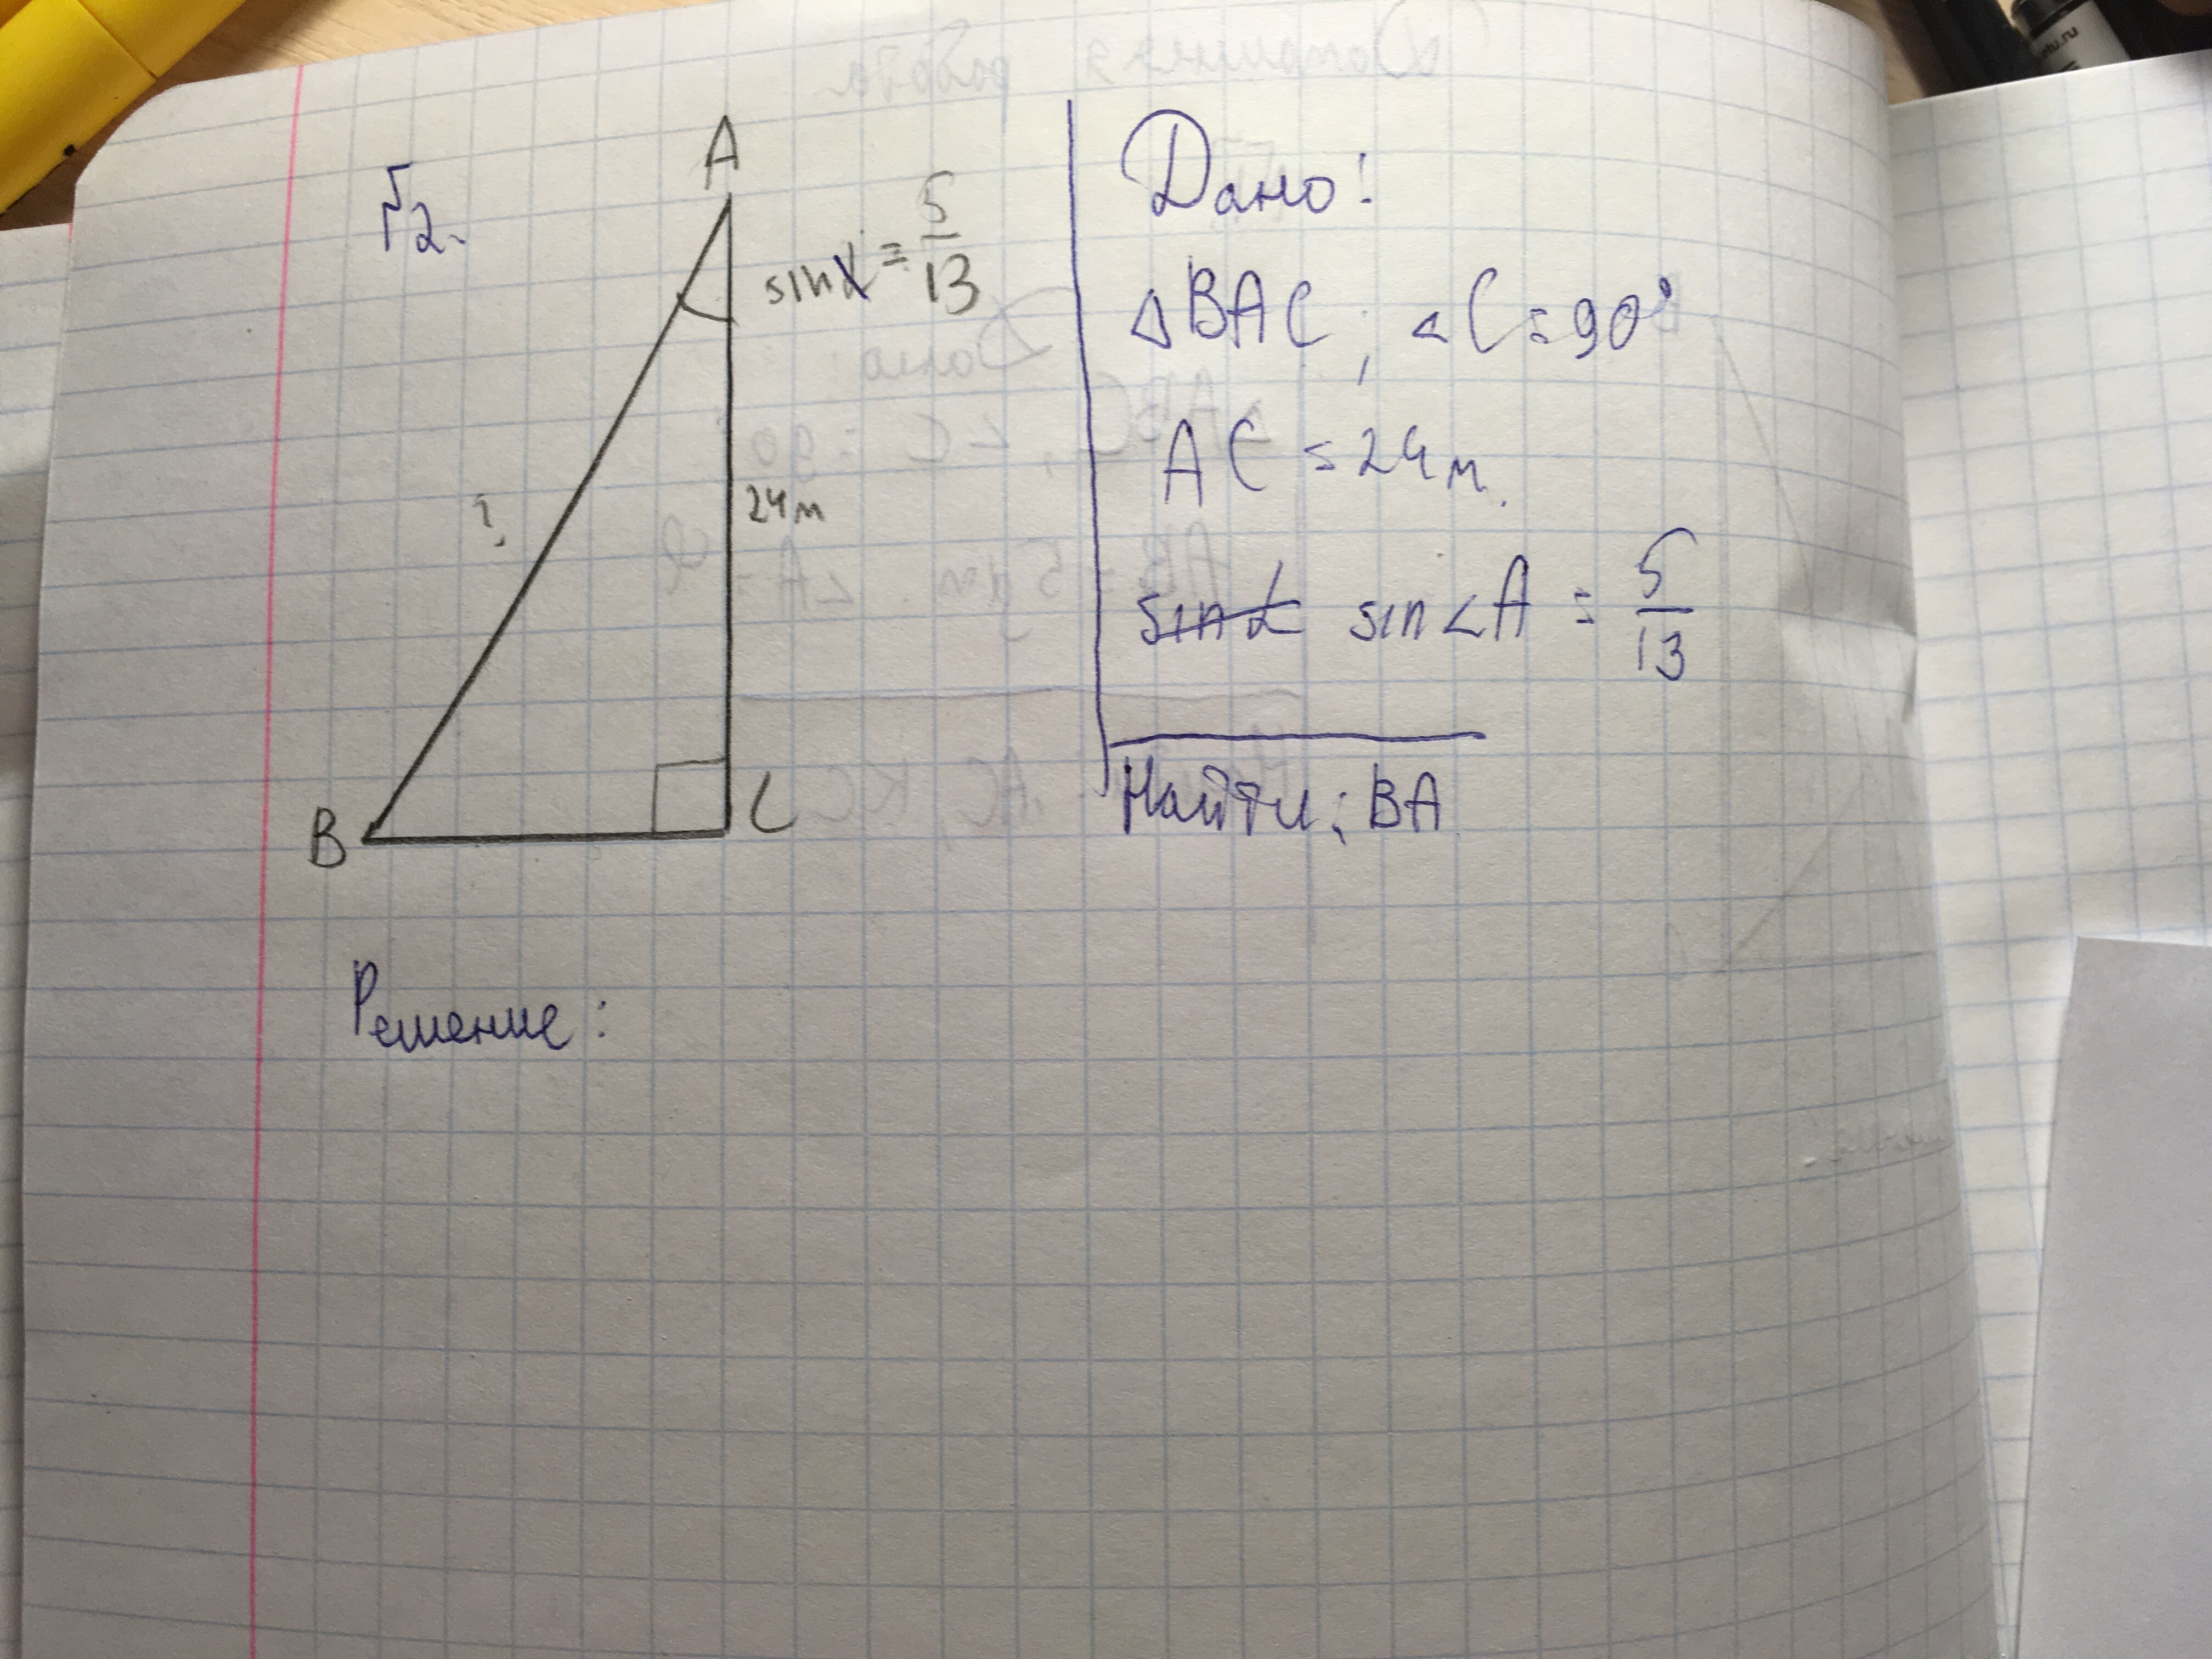 Г2.
A
sinα = 5/13
?
24м
B
C
Дано:
△BAC, ∠C=90°
AC = 24м.
sinα sin∠A = 5/13
Найти: BA
Решение: